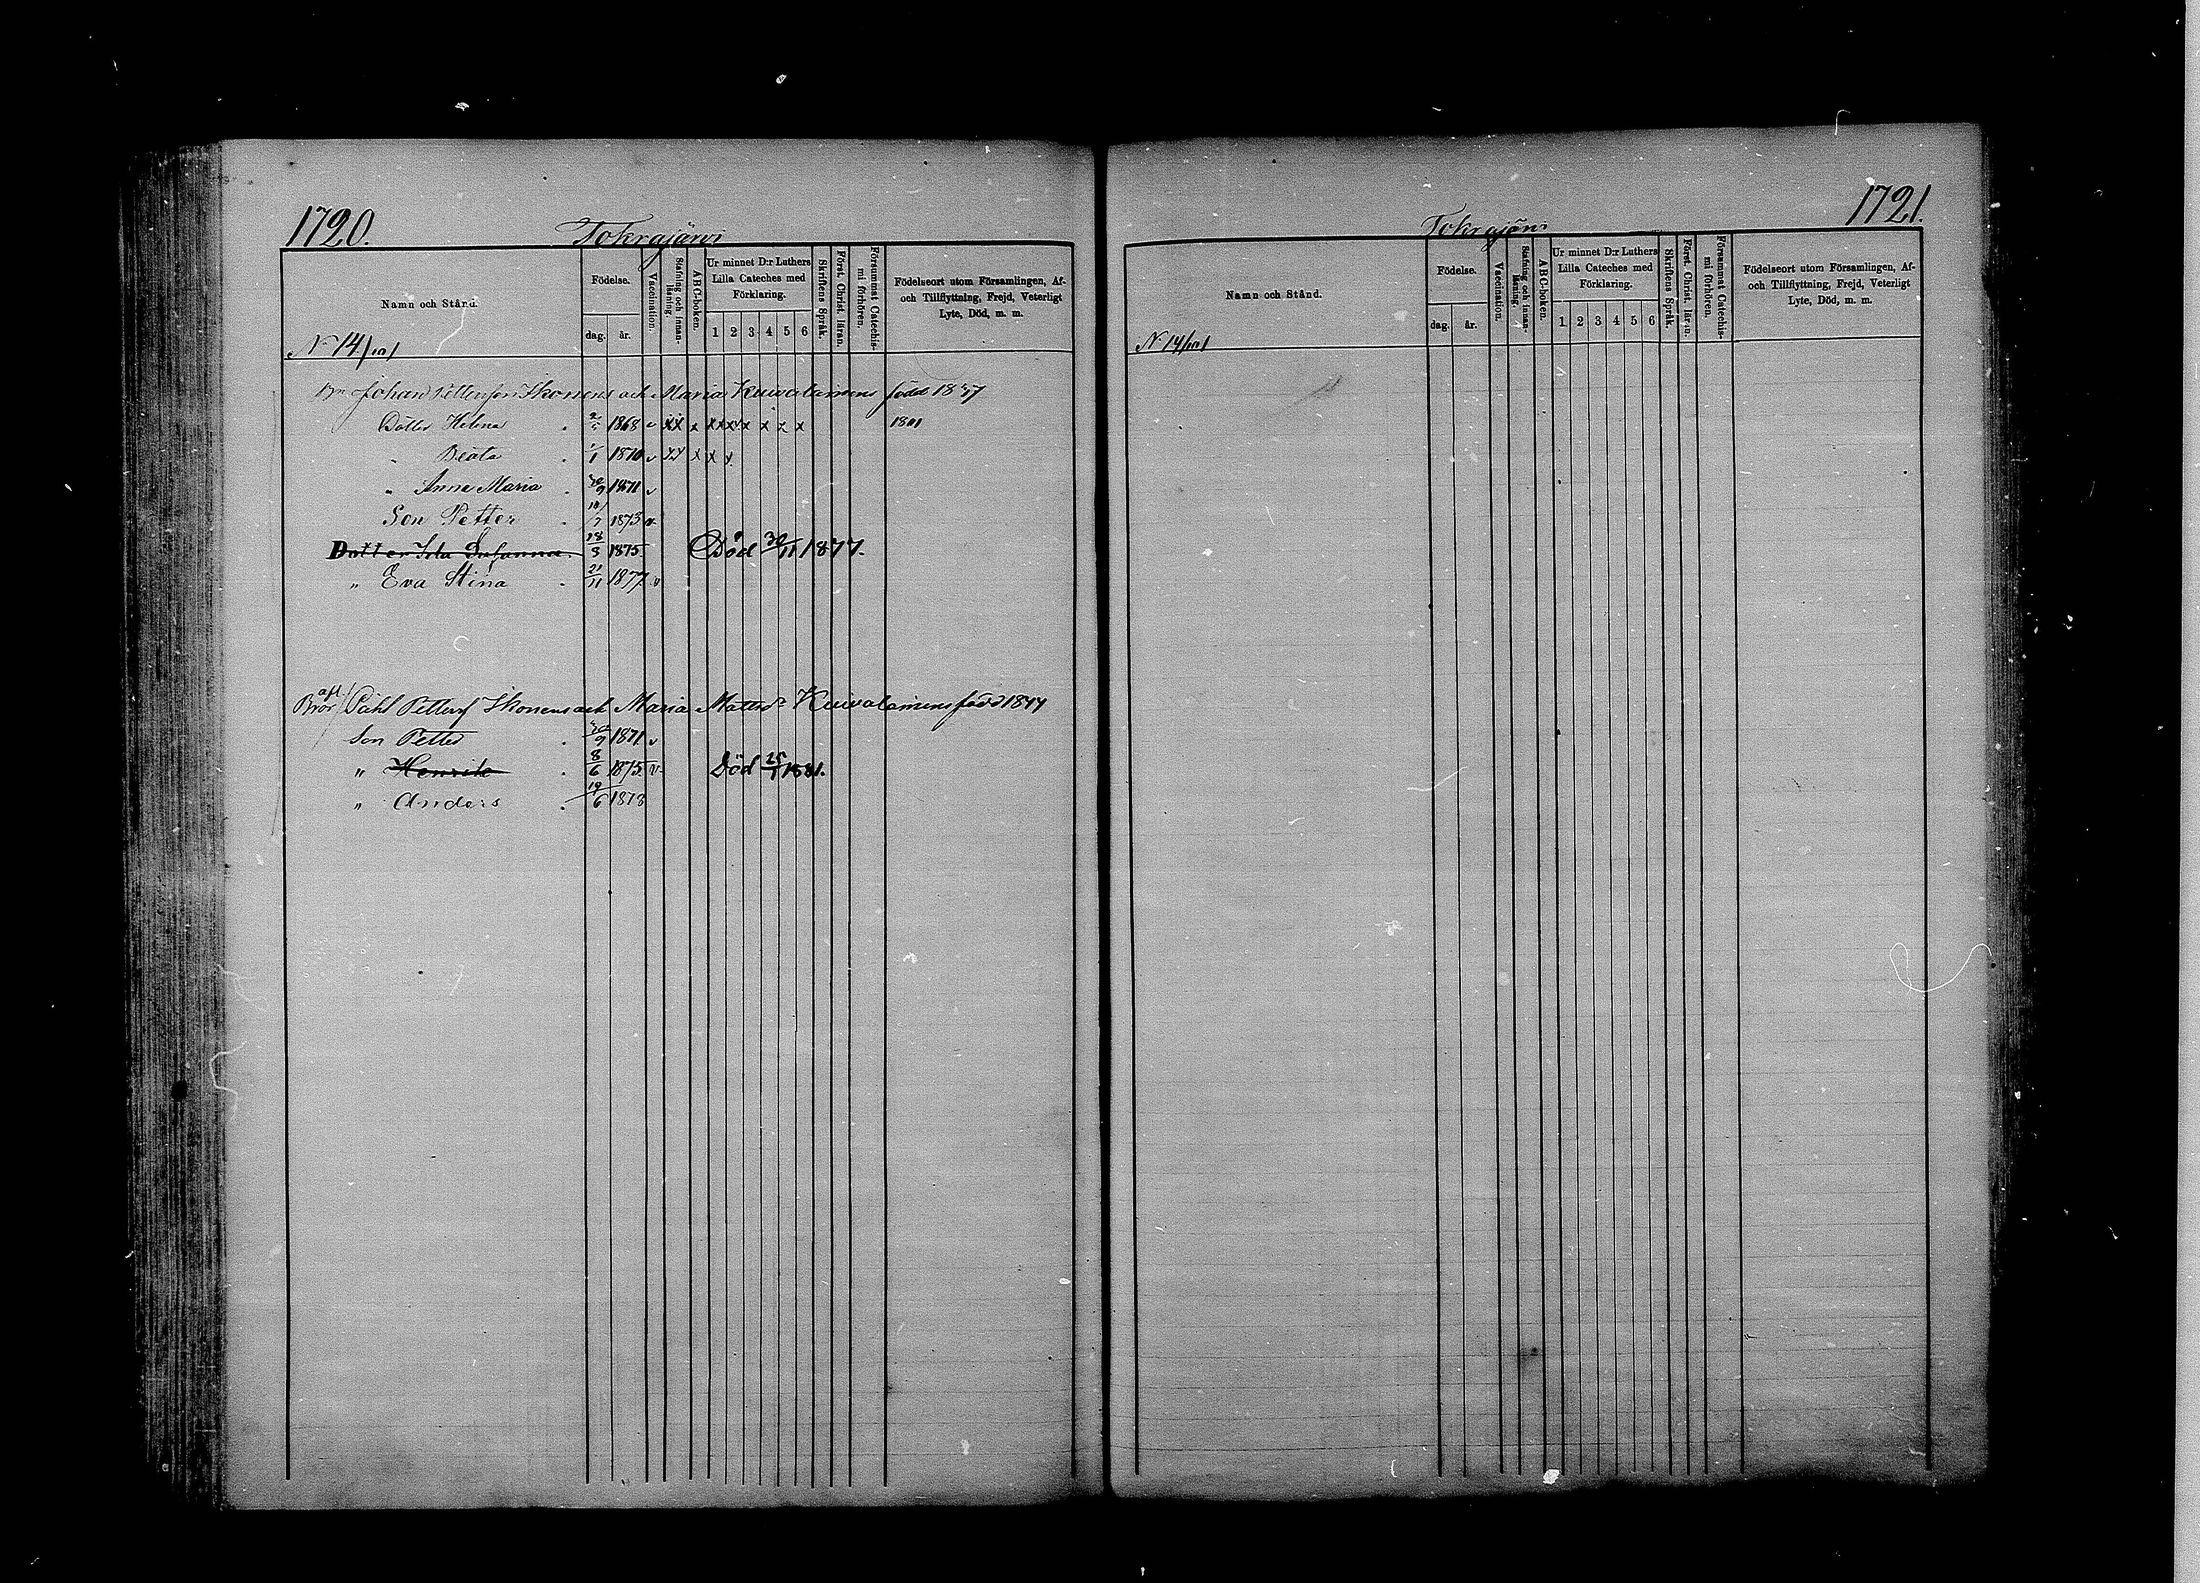 1720.
Tokrajärvi
Namn och Stånd.
Födelse.
dag. år.
Vaccination.
Stafning och innanläsning.
ABC-boken.
Ur minnet D:r Luthers Lilla Cateches med Förklaring.
1 2 3 4 5 6
Skriftens Språk.
Först. Christ. läran.
Försummat Catechismi förhören.
Födelseort utom Församlingen, Af- och Tillflyttning, Frejd, Veterligt Lyte, Död, m. m.
N 14/101
Johan Petterson Ikonens och Maria Kuivalainens född 1847
Dotter Helena 1868 v xx x x x x x x x 1881
" Beata 1/1 1870 v xx x x x
" Anna Maria 1871 v
Son Petter 1873 v.
Dotter Ida Susanna 18/8 1875 Död 30/11 1877.
" Eva Stina 21/11 1877 v
Bror Påhl Petters Ikonens och Maria Mattsd. Kuivalainens född 1844
Son Petter 1871 v
" Henrik 8/6 1875 v. Död 25/1 1881.
" Anders 19/6 1878
1721.
Tokrajärvi
Namn och Stånd.
Födelse.
dag. år.
Vaccination.
Stafning och innanläsning.
ABC-boken.
Ur minnet D:r Luthers Lilla Cateches med Förklaring.
1 2 3 4 5 6
Skriftens Språk.
Först. Christ. läran.
Försummat Catechismi förhören.
Födelseort utom Församlingen, Af- och Tillflyttning, Frejd, Veterligt Lyte, Död, m. m.
N 14/101